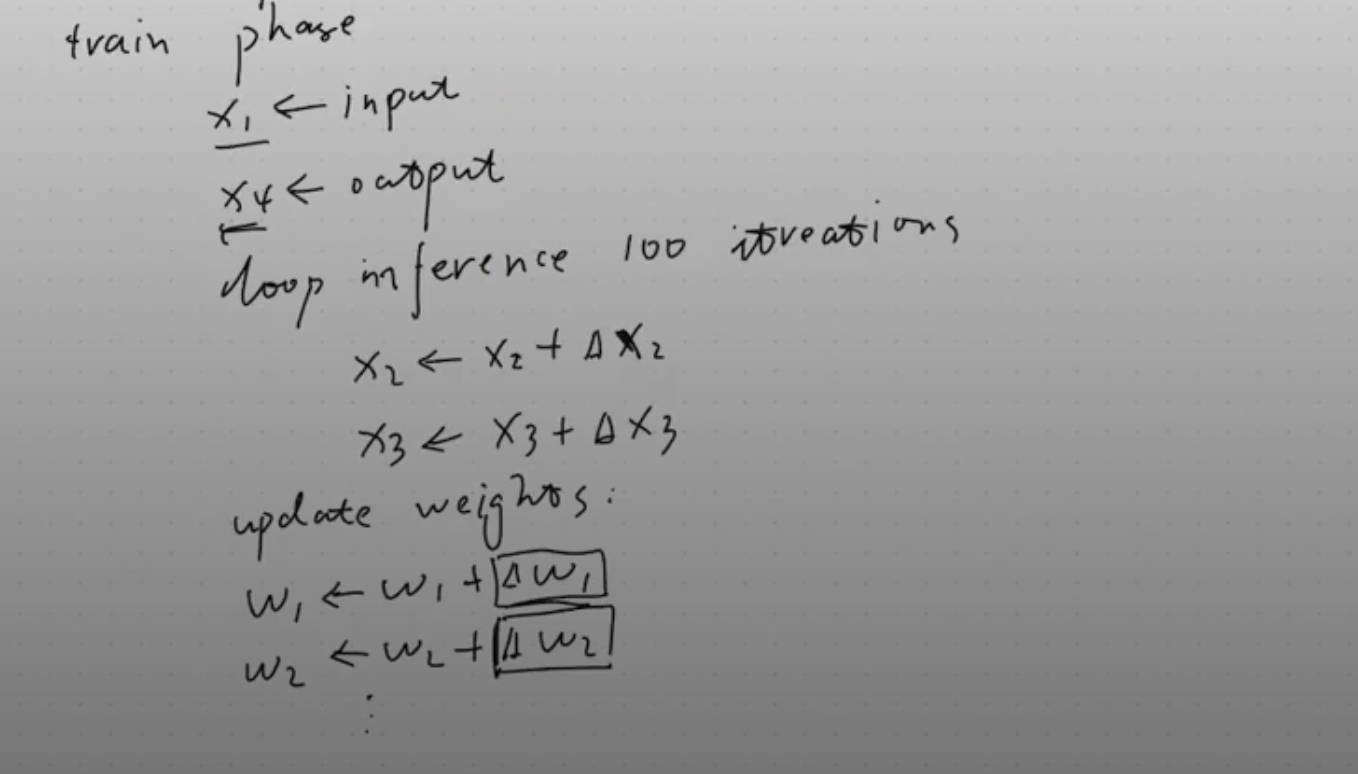 train phase
x₁ ← input
x₄ ← output
loop inference 100 itreations
x₂ ← x₂ + Δx₂
x₃ ← x₃ + Δx₃
update weights:
w₁ ← w₁ + Δw₁
w₂ ← w₂ + Δw₂
⋮